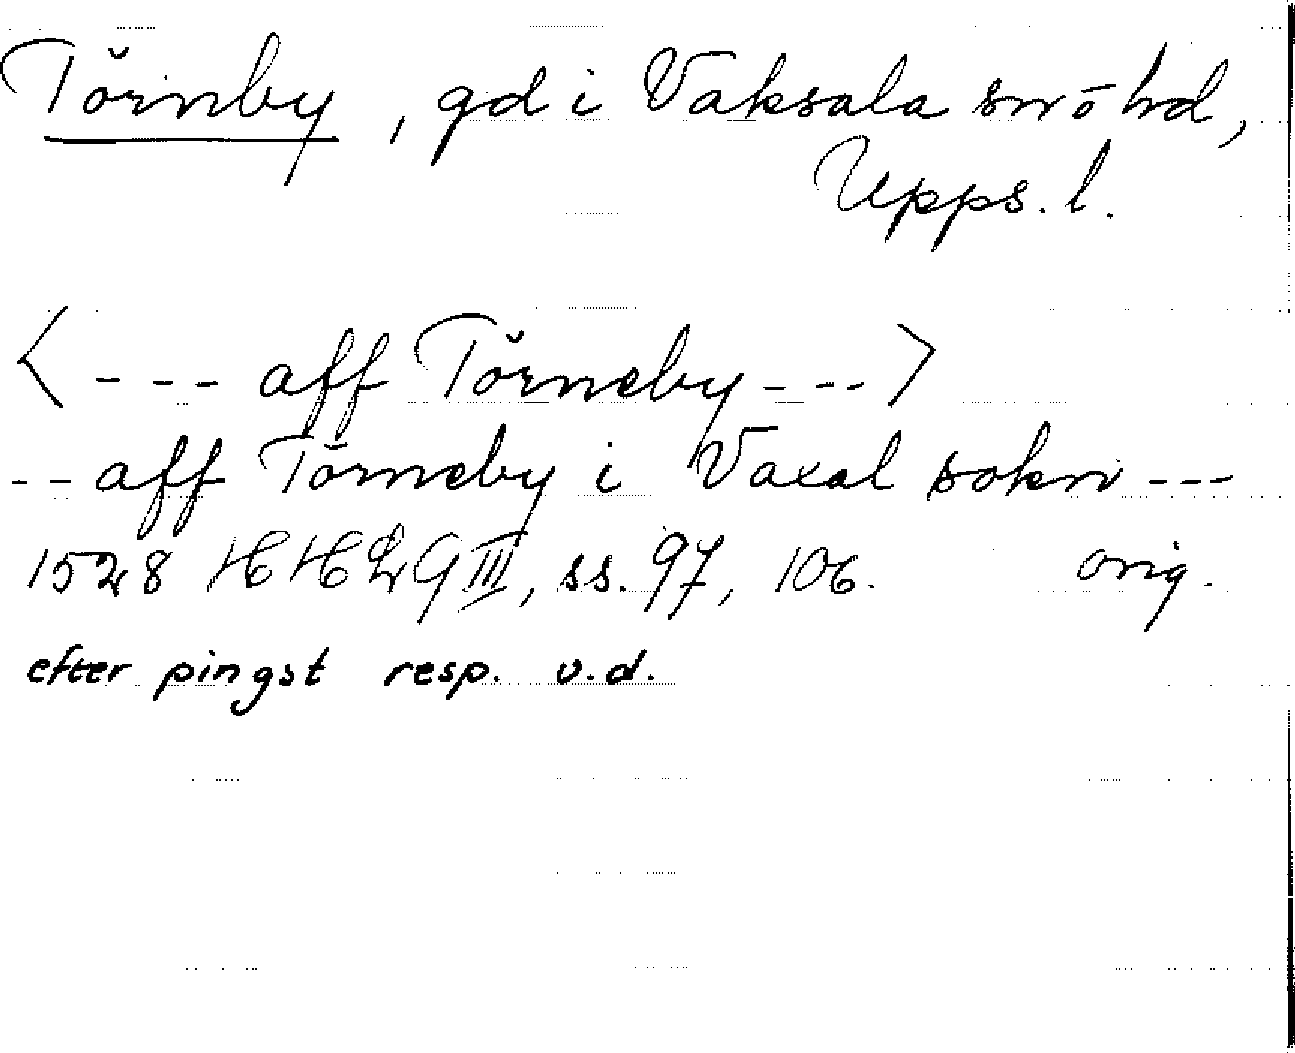 Törnby, gd i Vaksala sn o hd,
Upps. l.
< --- aff Törneby --- >
-- aff Törneby i Vaxal sokn ---
1528 HH 2 G III, ss. 97, 106. orig.
efter pingst resp. u.d.